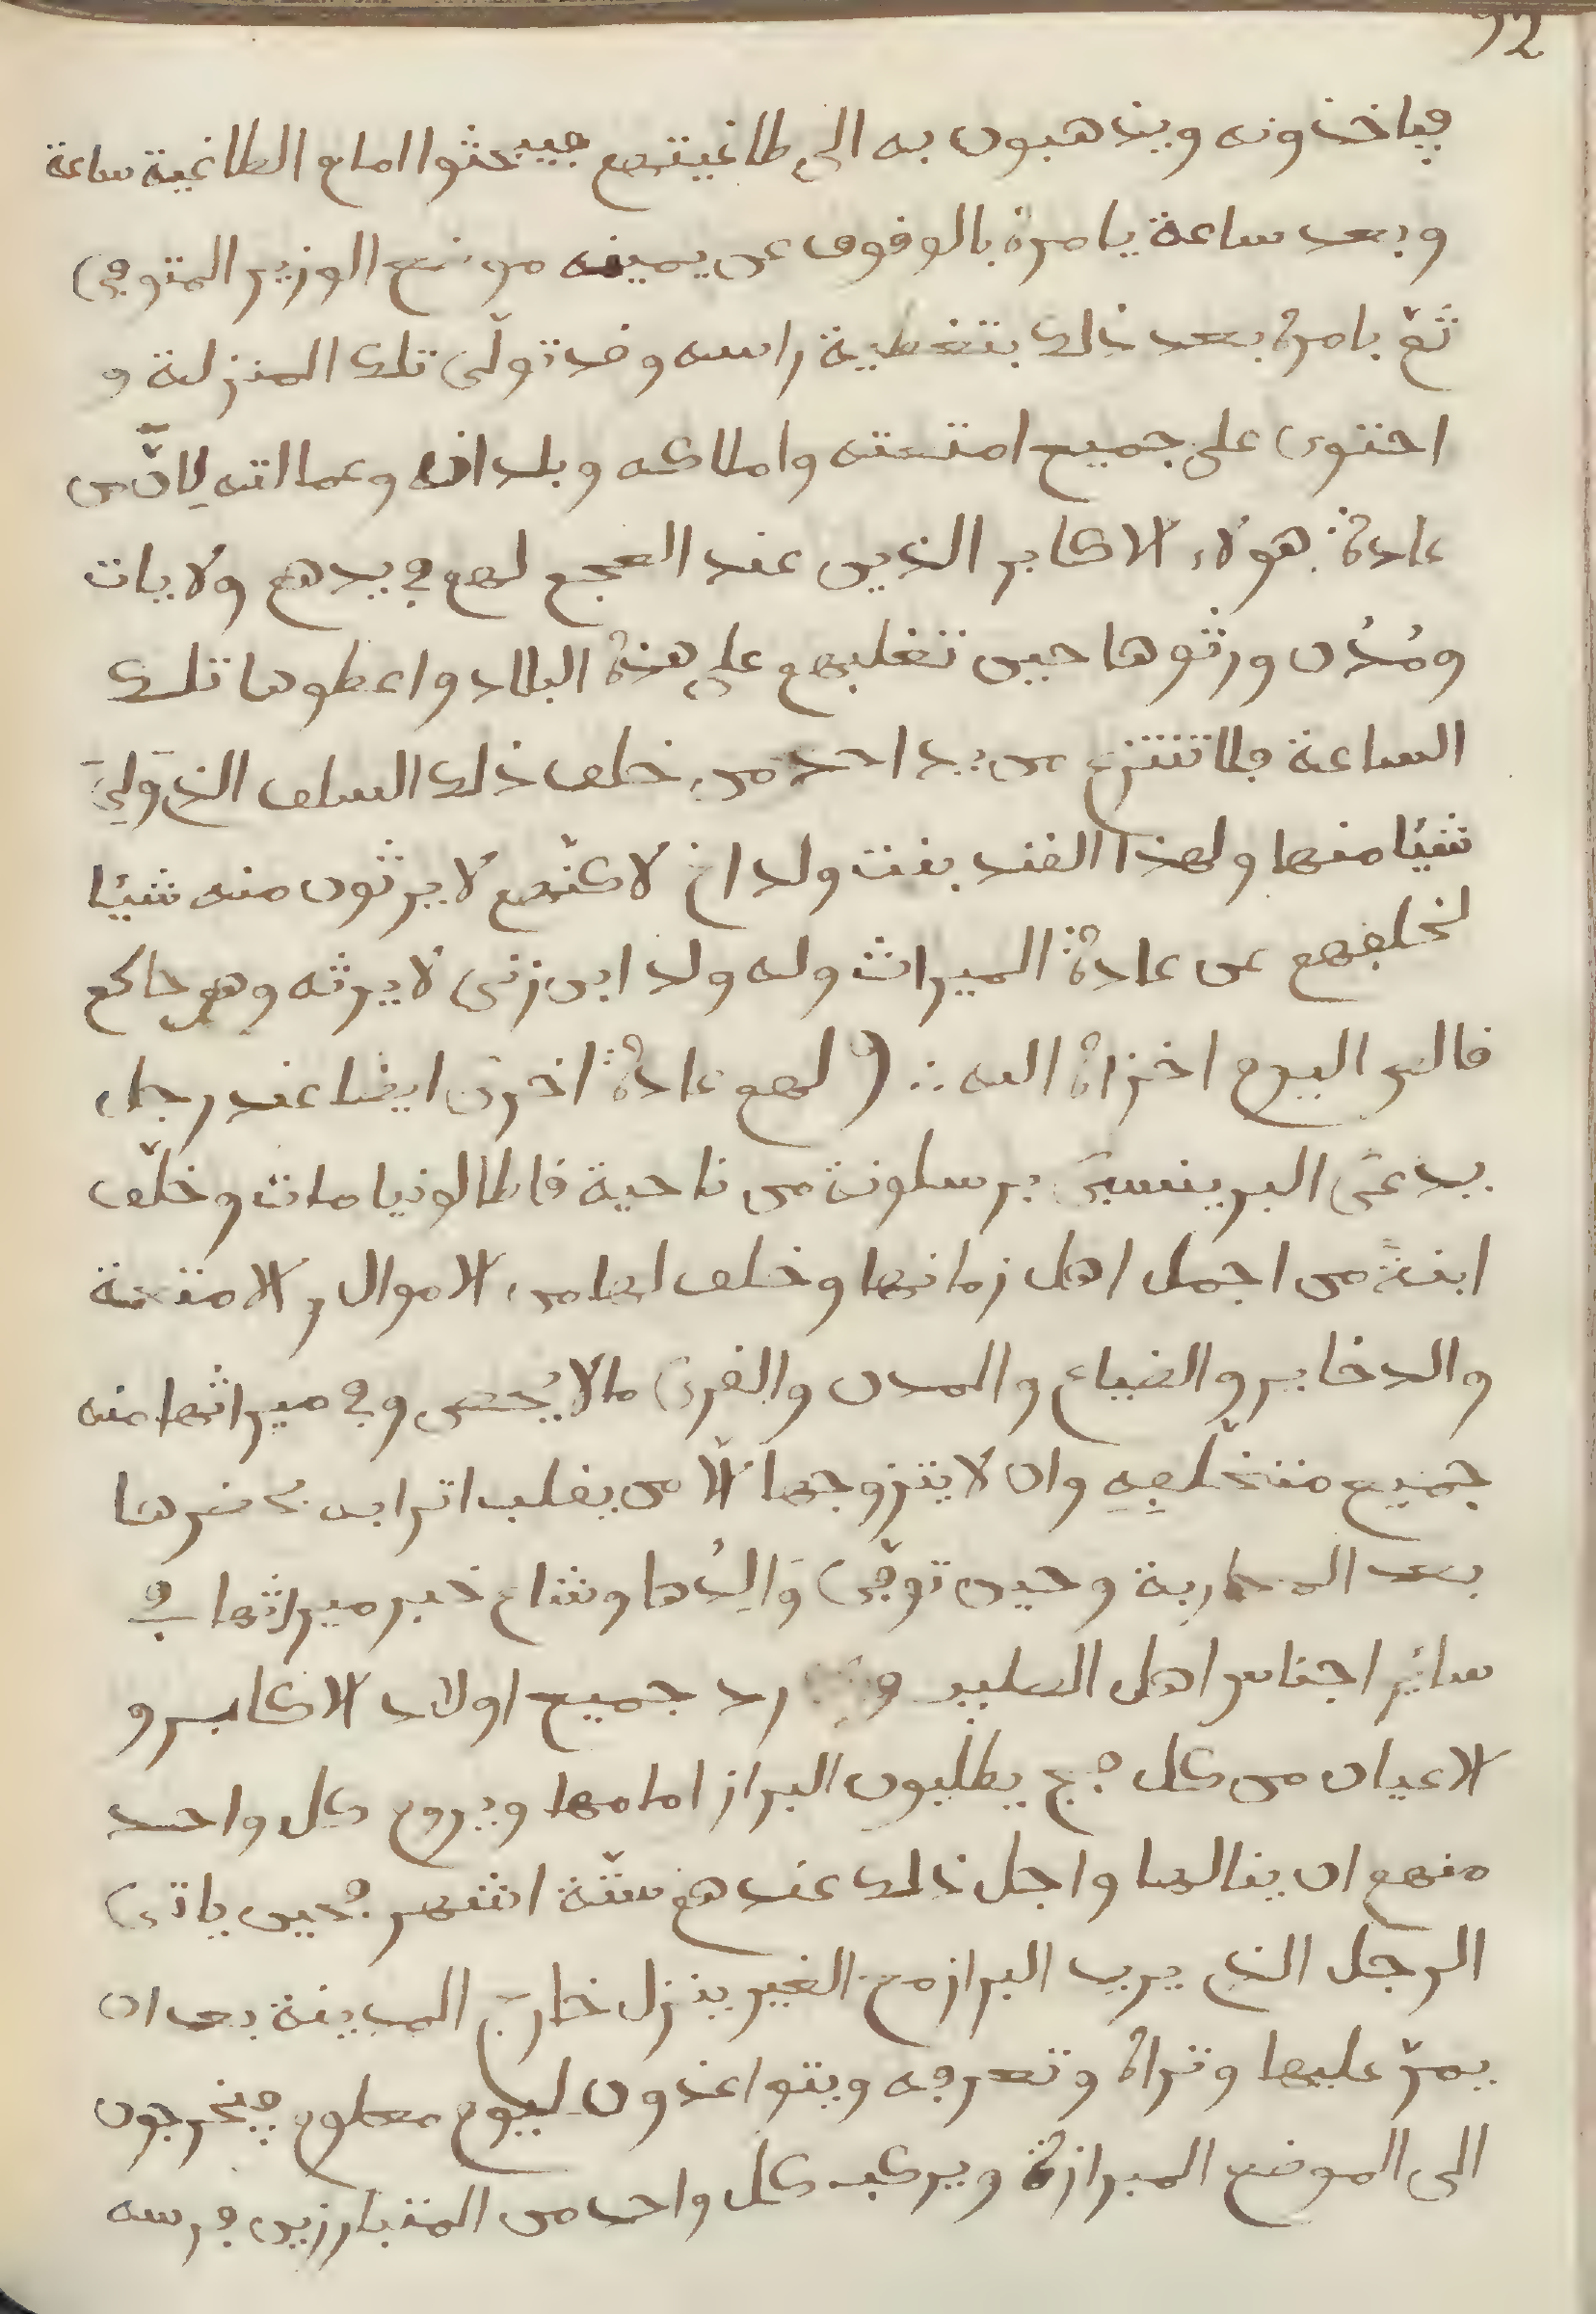 92
فياخذونه ويذهبون به الى طاغيتهم فيبحثوا امام الطاغية ساعة
وبعد ساعة يامره بالوقوف عن يمينه موضع الوزير المتوفى
ثمّ يامره بعد ذلك بتغطية راسه وقد تولّى تلك المنزلة و
احتوى على جميع امتعته واملاكه وبلدانه وعمالته لِانّ من
عادة هولاء الاكابر الذين عند العجم لهم في يدهم ولايات
ومُدُن ورثوها حين تغلبهم على هذه البلاد واعطوها تلك
الساعة فلا تنتزع من يد احد من خلف ذلك السلف الذي وَلِيَ
شيئًا منها ولهذا القند بنت ولد اخ لاكنّهم لا يرثون منه شيئا
لخلفهم عن عادة الميراث وله ولد ابن زنى لا يرثه وهو حاكم
قالس اليوم اخزاه الله ∴ ولهم عادة اخرى ايضا عند رجل
يدعَى البرينسبى برسلونة من ناحية قاطالونيا مات وخلّف
ابنةً من اجمل اهل زمانها وخلف لها من الاموال والامتعة
والدخاير والضياع والمدن والقرى ما لا يُحصى وفي ميراثها منه
جميع متخلّفِهِ وان لا يتزوجها الّا من يغلب اترابه بمحضرها
بعد المحاربة وحين توفّى وَالِدُها وشاع خبر ميراثها في
سائر اجناس اهل الصليب ورد جميع اولاد الاكابر و
الاعيان من كل فج يطلبون البراز امامها ويروم كل واحد
منهم ان ينالها واجل ذلك عندهم ستّة اشهر فحين ياتى
الرجل الذي يريد البراز مع الغير ينزل خارج المدينة بعد ان
يمرّ عليها وتراه وتعرفه ويتواعذون ليوم معلوم فيخرجون
الى الموضع المبرازة ويركب كل واحد من المتبارزين فرسه